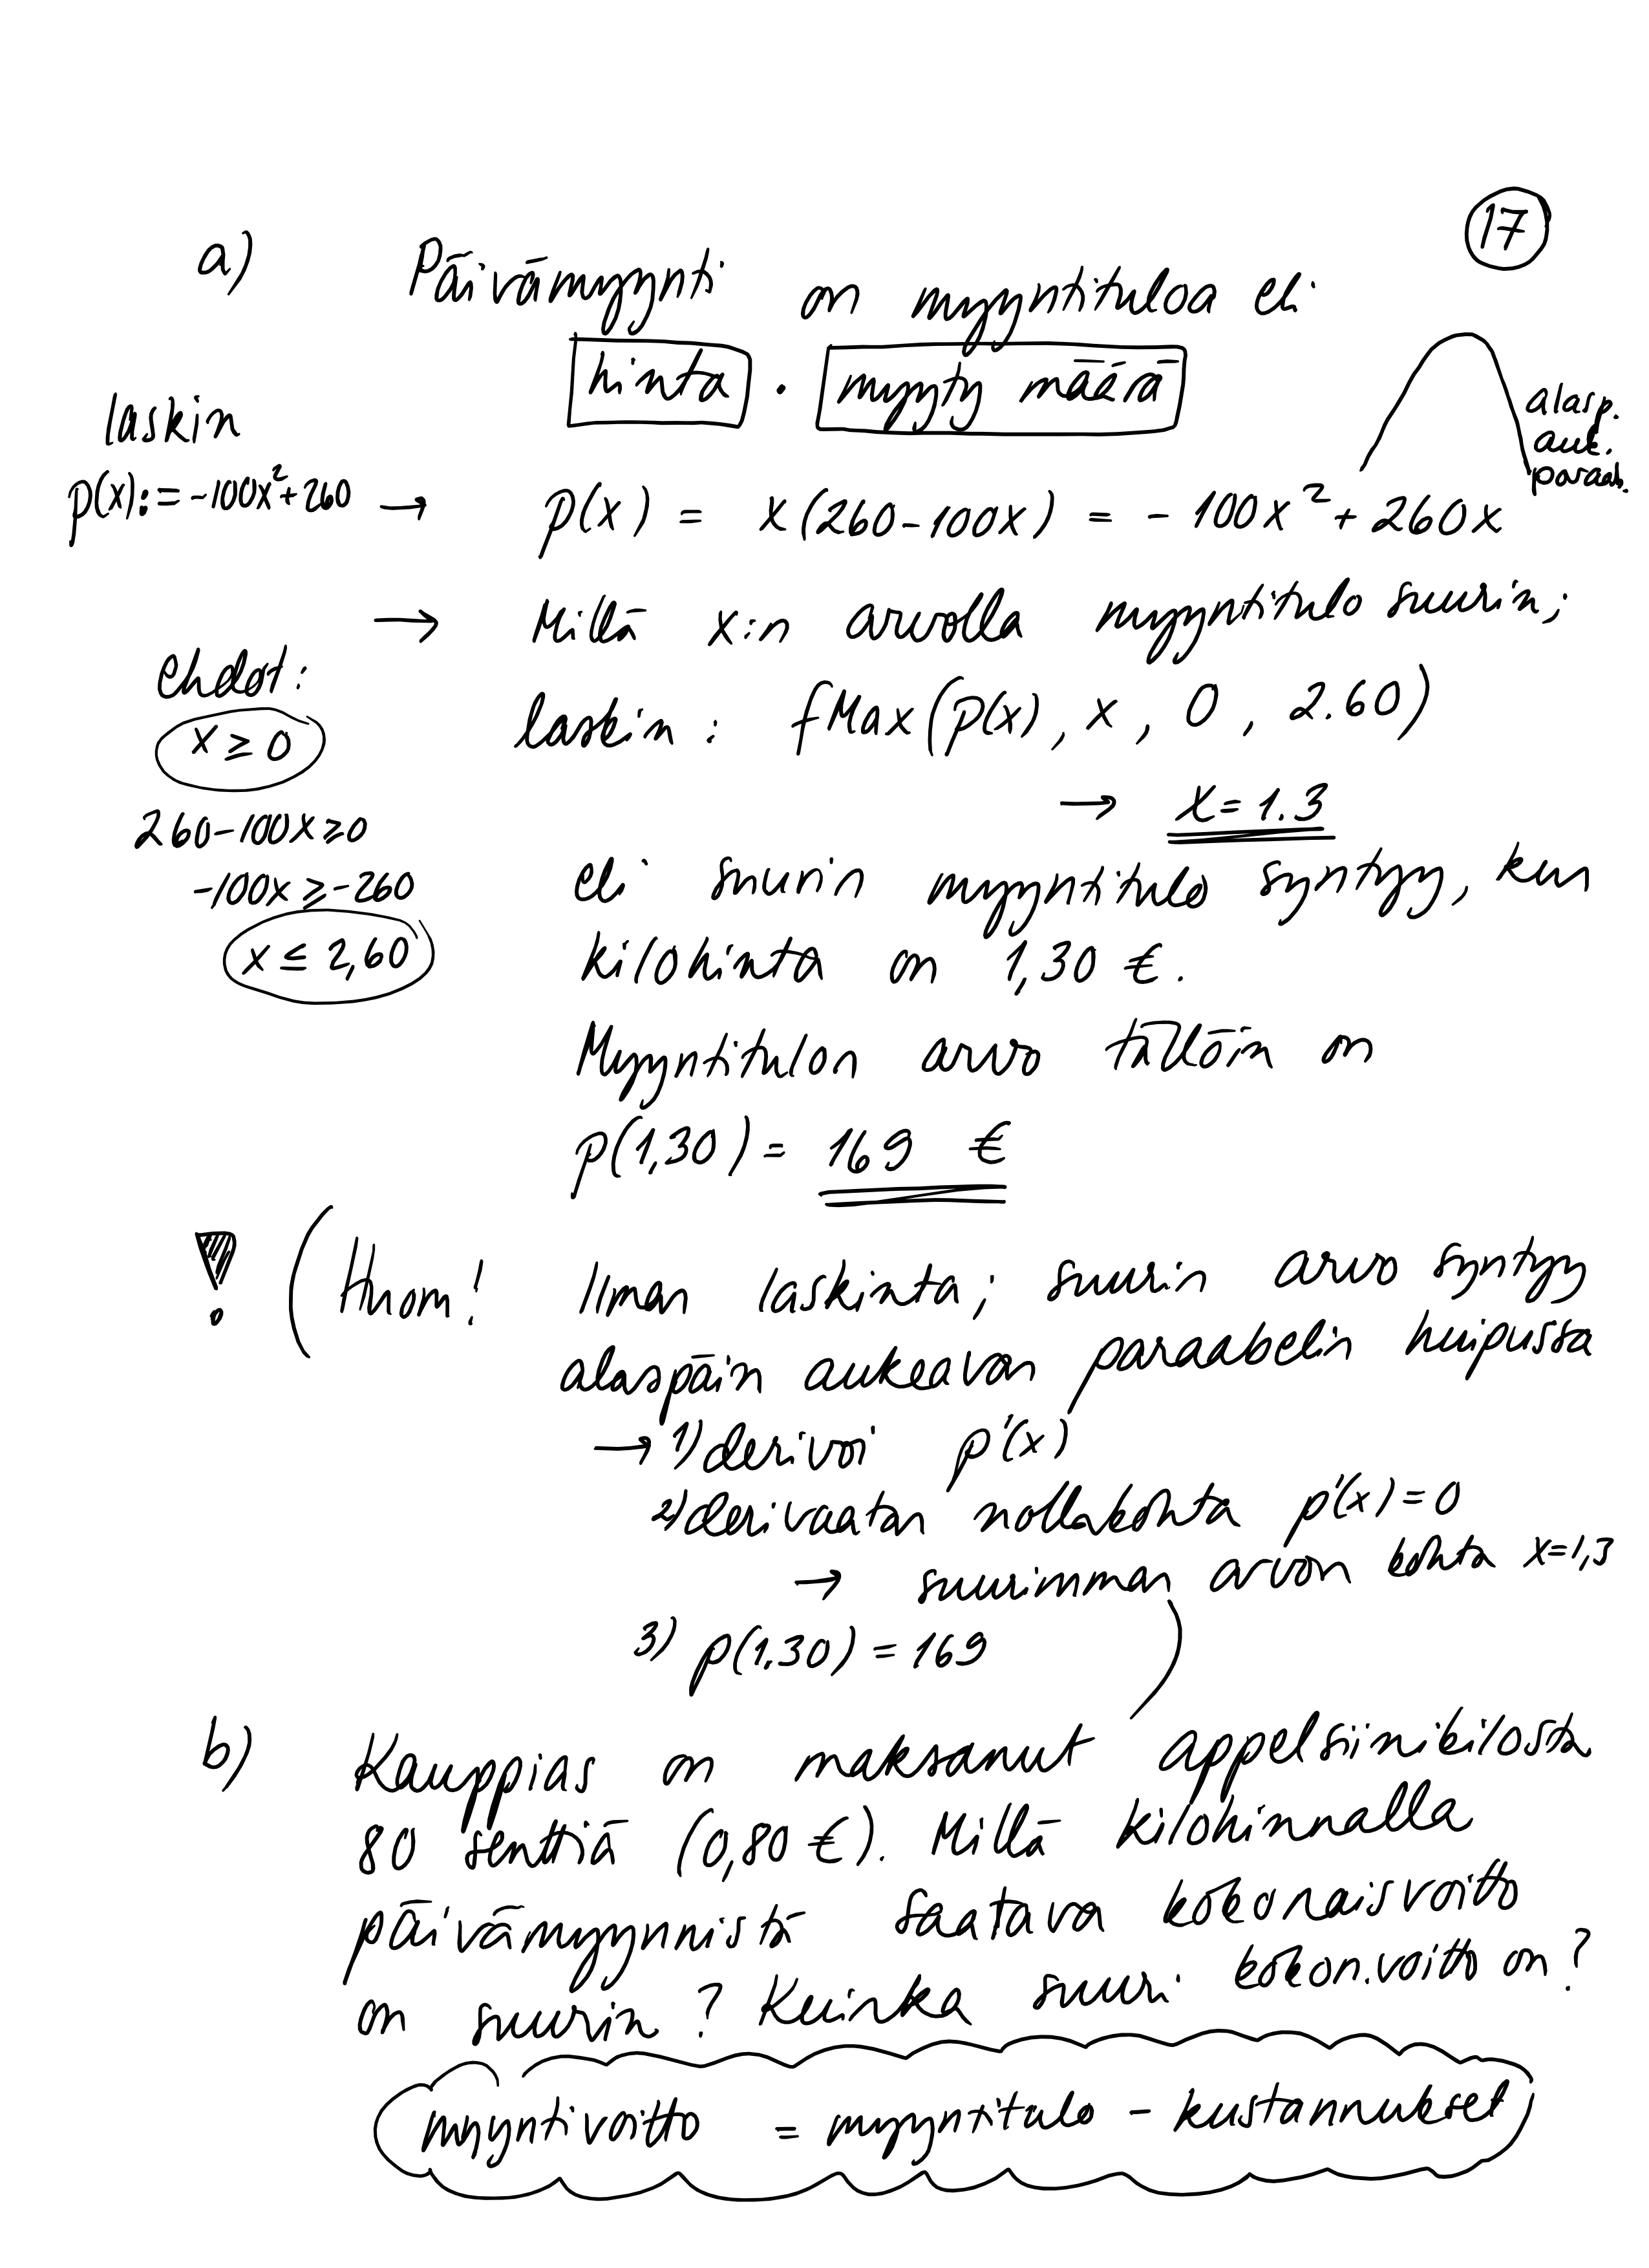 17
a) Päivämyynti on myyntituloa eli
hinta · myyty määrä
alasp.
auk.
paraab.
laskin
p(x):=-100x²+260 → p(x) = x(260-100x) = -100x²+260x
→ Millä x:n arvolla myyntitulo suurin;
ehdot:
x ≥ 0
260-100x≥0
-100x ≥ -260
x ≤ 2,60
laskin: fMax(p(x), x, 0, 2.60)
→ x = 1.3
eli suurin myyntitulo syntyy, kun
kilohinta on 1,30 €.
Myyntitulon arvo tällöin on
p(1,30) = 169 €
! (Huom! Ilman laskinta; suurin arvo syntyy
alaspäin aukeavan paraabelin huipussa
→ 1) derivoi p'(x)
2) derivaatan nollakohta p'(x)=0
→ suurimman arvon kohta x=1,3
3) p(1.30) = 169 )
b) Kauppias on maksanut appelsiinikilosta
80 senttiä (0,80 €). Millä kilohinnalla
päivämyynnistä saatava kokonaisvoitto
on suurin? Kuinka suuri kokon.voitto on?
myyntivoitto = myyntitulo - kustannukset